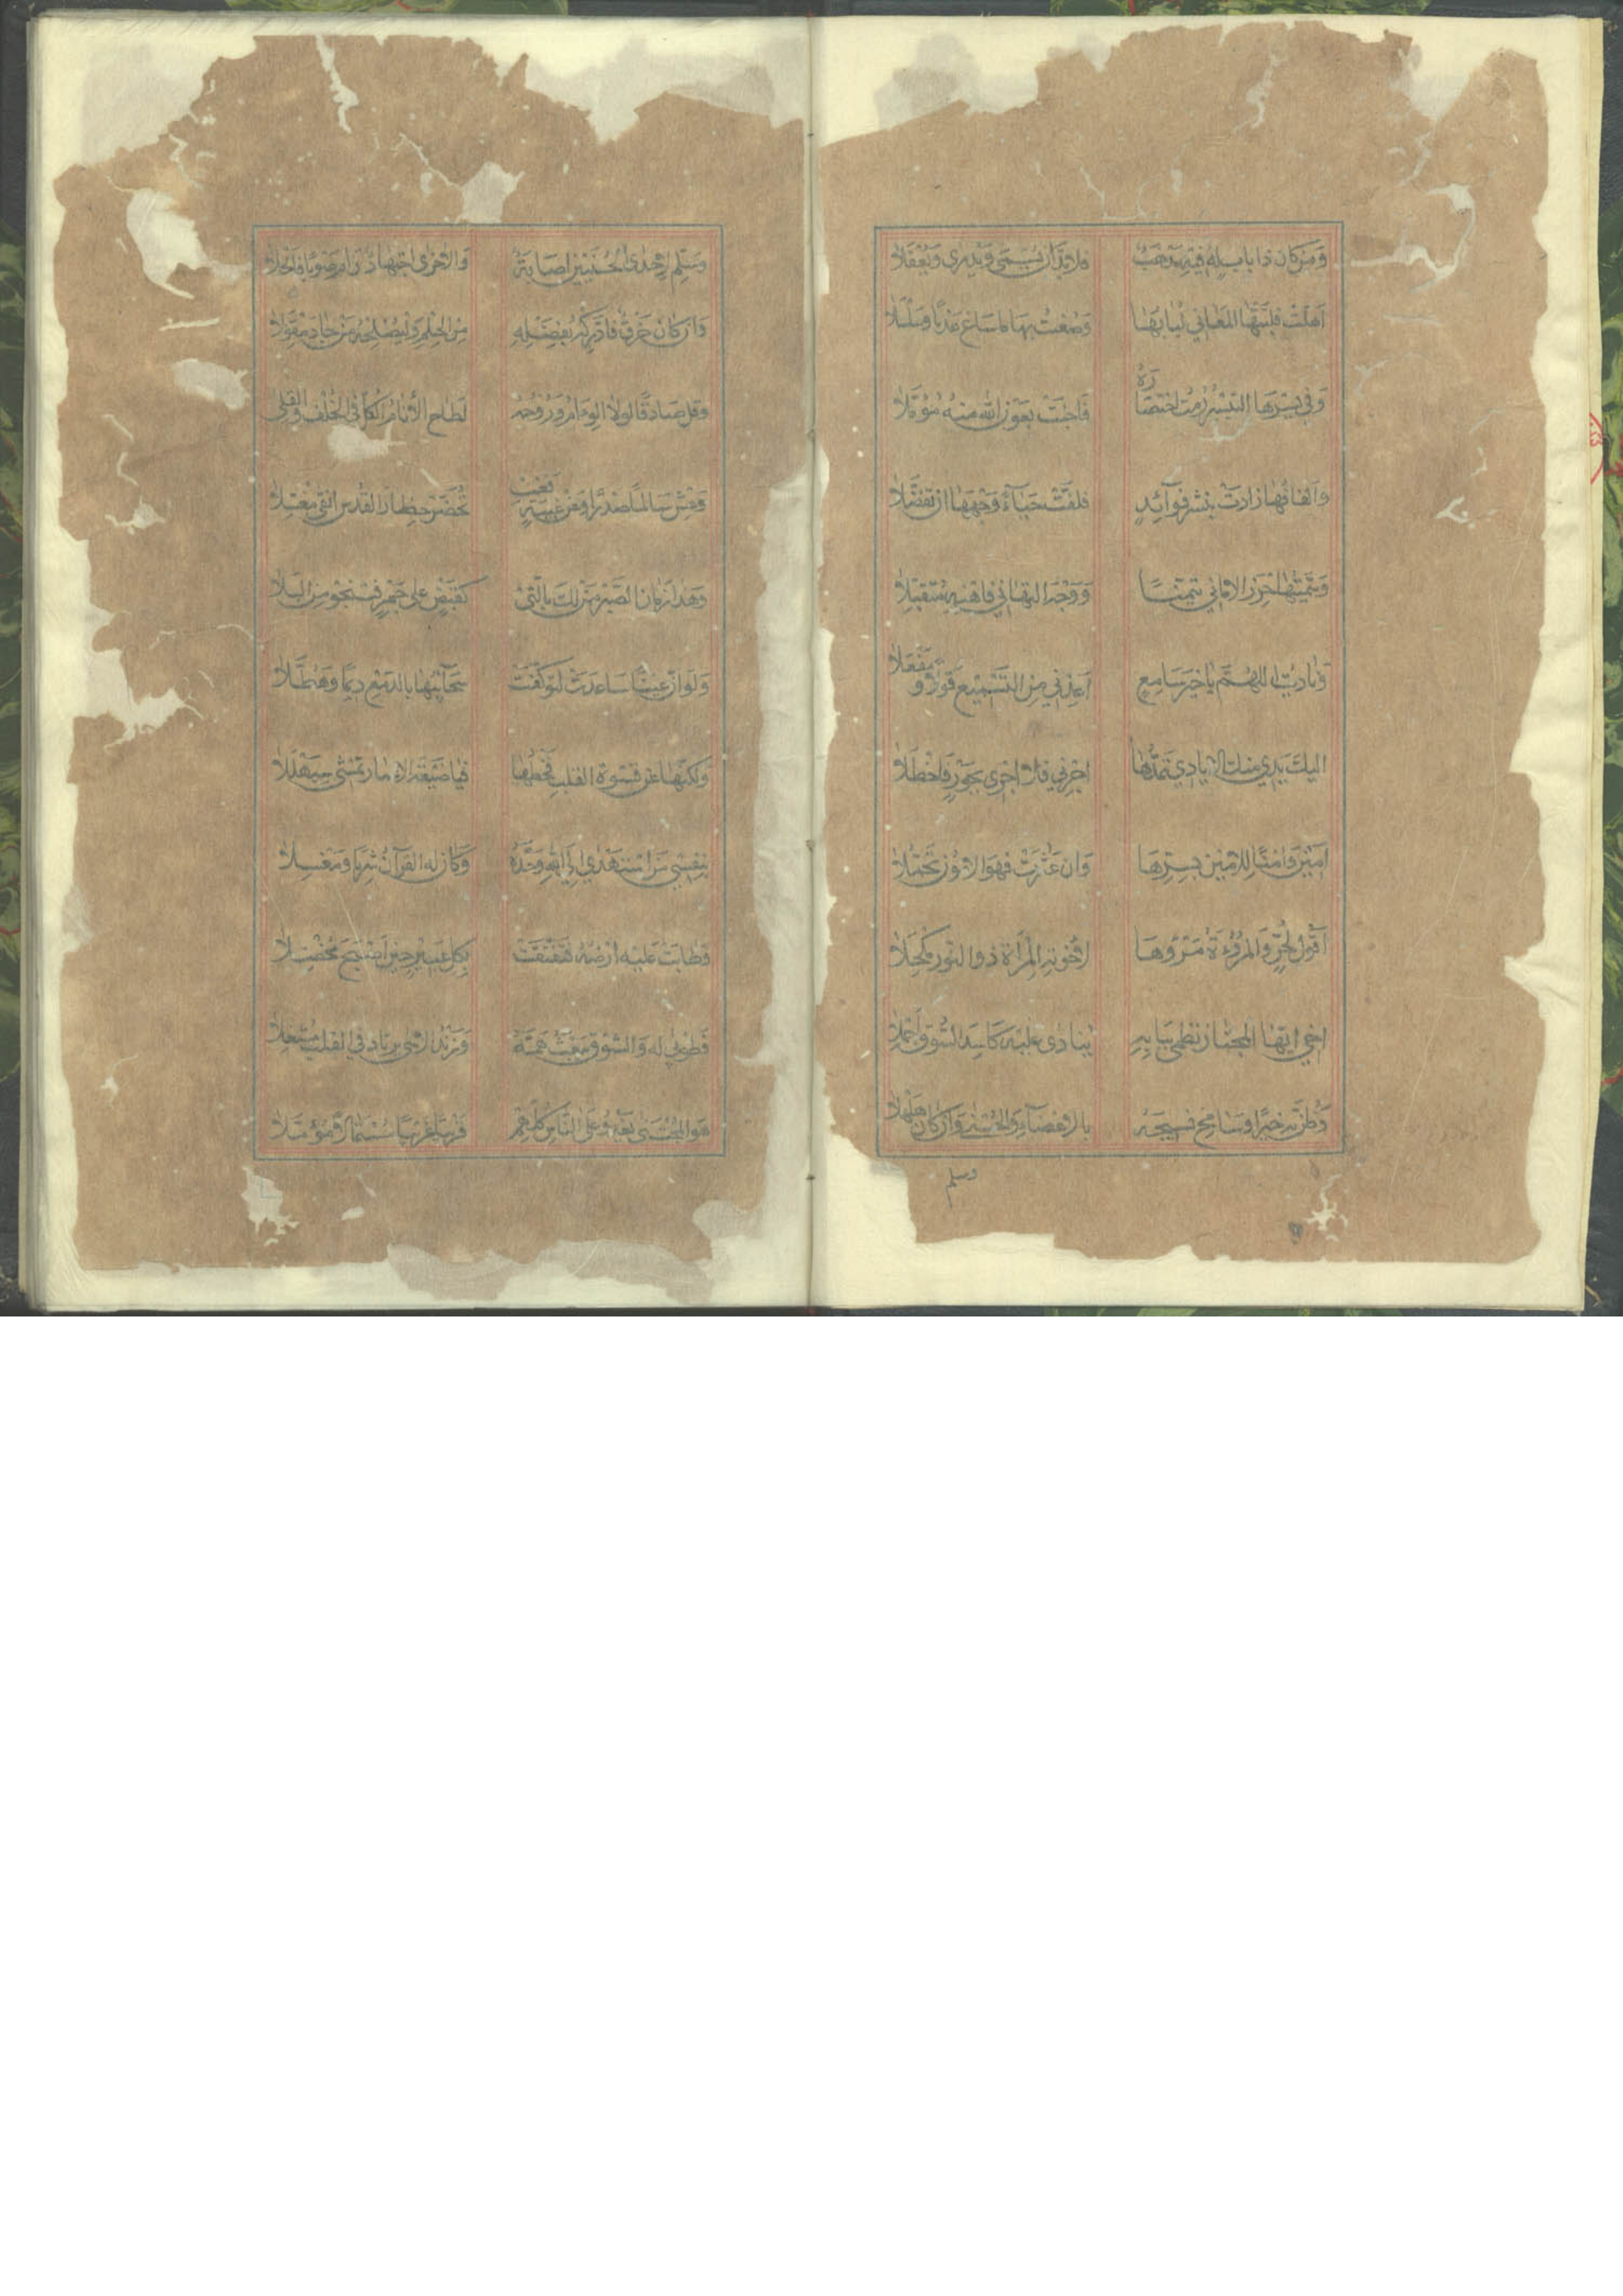 وَمَنْ كَانَ ذَا بَابٍ لَهُ فِيهِ مَذْهَبٌ فَلَا بُدَّ اَنْ يُسْمَى وَيُدْرَى وَيُعْقَلَا
اَهَلَّتْ فَلَبَّتْهَا الْمَعَانِي لُبَابُهَا وَصُغْتُ بِهَا مَا سَاغَ عَذْبًا وَسَلْسَلَا
وَفِي يُسْرِهَا التَّيْسِيرُ رُمْتُ اخْتِصَارَهُ فَاَجْنَتْ بِعَوْنِ اللهِ مِنْهُ مُؤَمَّلَا
وَاَلْفَافُهَا زَادَتْ بِنَشْرِ فَوَائِدٍ فَلَفَّتْ حَيَاءً وَجْهَهَا اَنْ تُفَضَّلَا
وَسَمَّيْتُهَا حِرْزَ الْاَمَانِي تَيَمُّنًا وَوَجْهَ التَّهَانِي فَاهْنِهِ مُتَقَبِّلَا
وَنَادَيْتُ اَللّٰهُمَّ يَا خَيْرَ سَامِعٍ اَعِذْنِي مِنَ التَّسْمِيعِ قَوْلًا وَمَفْعَلَا
اِلَيْكَ يَدِي مِنْكَ الْاَيَادِي تَمُدُّهَا اَجِرْنِي فَلَا اَجْرِي بِجَوْرٍ فَاَخْطَلَا
اَمِينَ وَاَمْنًا لِلْاَمِينِ بِسِرِّهَا وَاِنْ عَثَرَتْ فَهُوَ الْاَمُونُ تَحَمُّلَا
اَقُولُ لِحُرٍّ وَالْمُرُوءَةُ مَرْؤُهَا لِاِخْوَتِهِ الْمِرْآةُ ذُو النُّورِ مِكْحَلَا
اَخِي اَيُّهَا الْمُجْتَازُ نَظْمِي بِبَابِهِ يُنَادَى عَلَيْهِ كَاسِدَ السُّوقِ اَجْمِلَا
وَظُنَّ بِهِ خَيْرًا وَسَامِحْ نَسِيجَهُ بِالْاِغْضَاءِ وَالْحُسْنَى وَاِنْ كَانَ هَلْهَلَا
وسلم
وَسَلِّمْ لِاِحْدَى الْحُسْنَيَيْنِ اِصَابَةٌ وَالْاُخْرَى اجْتِهَادٌ رَامَ صَوْبًا فَاَمْحَلَا
وَاِنْ كَانَ خَرْقٌ فَادَّرِكْهُ بِفَضْلَةٍ مِنَ الْحِلْمِ وَلْيُصْلِحْهُ مَنْ جَادَ مِقْوَلَا
وَقُلْ صَادِقًا لَوْلَا الْوِئَامُ وَرُوحُهُ لَطَاحَ الْاَنَامُ الْكُلُّ فِي الْخُلْفِ وَالْقِلَى
وَعِشْ سَالِمًا صَدْرًا وَعَنْ غِيبَةٍ فَغِبْ تُحَضَّرْ حِظَارَ الْقُدْسِ اَنْقَى مُغَسَّلَا
وَهٰذَا زَمَانُ الصَّبْرِ مَنْ لَكَ بِالَّتِي كَقَبْضٍ عَلَى جَمْرٍ فَتَنْجُو مِنَ الْبَلَا
وَلَوْ اَنَّ عَيْنًا سَاعَدَتْ لَتَوَكَّفَتْ سَحَائِبُهَا بِالدَّمْعِ دِيمًا وَهُطَّلَا
وَلٰكِنَّهَا عَنْ قَسْوَةِ الْقَلْبِ قَحْطُهَا فَيَا ضَيْعَةَ الْاَعْمَارِ تَمْشِي سَبَهْلَلَا
بِنَفْسِي مَنِ اسْتَهْدَى اِلَى اللهِ وَحْدَهُ وَكَانَ لَهُ الْقُرْآنُ شِرْبًا وَمَغْسِلَا
وَطَابَتْ عَلَيْهِ اَرْضُهُ فَتَفَتَّقَتْ بِكُلِّ عَبِيرٍ حِينَ اَصْبَحَ مُخْضَلَا
فَطُوبَى لَهُ وَالشَّوْقُ يَبْعَثُ هَمَّهُ وَزَنْدُ الْاَسَى يَرْتَادُ فِي الْقَلْبِ مُشْعِلَا
هُوَ الْمُجْتَبَى يَغْدُو عَلَى النَّاسِ كُلِّهِمْ قَرِيبًا غَرِيبًا مُسْتَمَالًا مُؤَمَّلَا